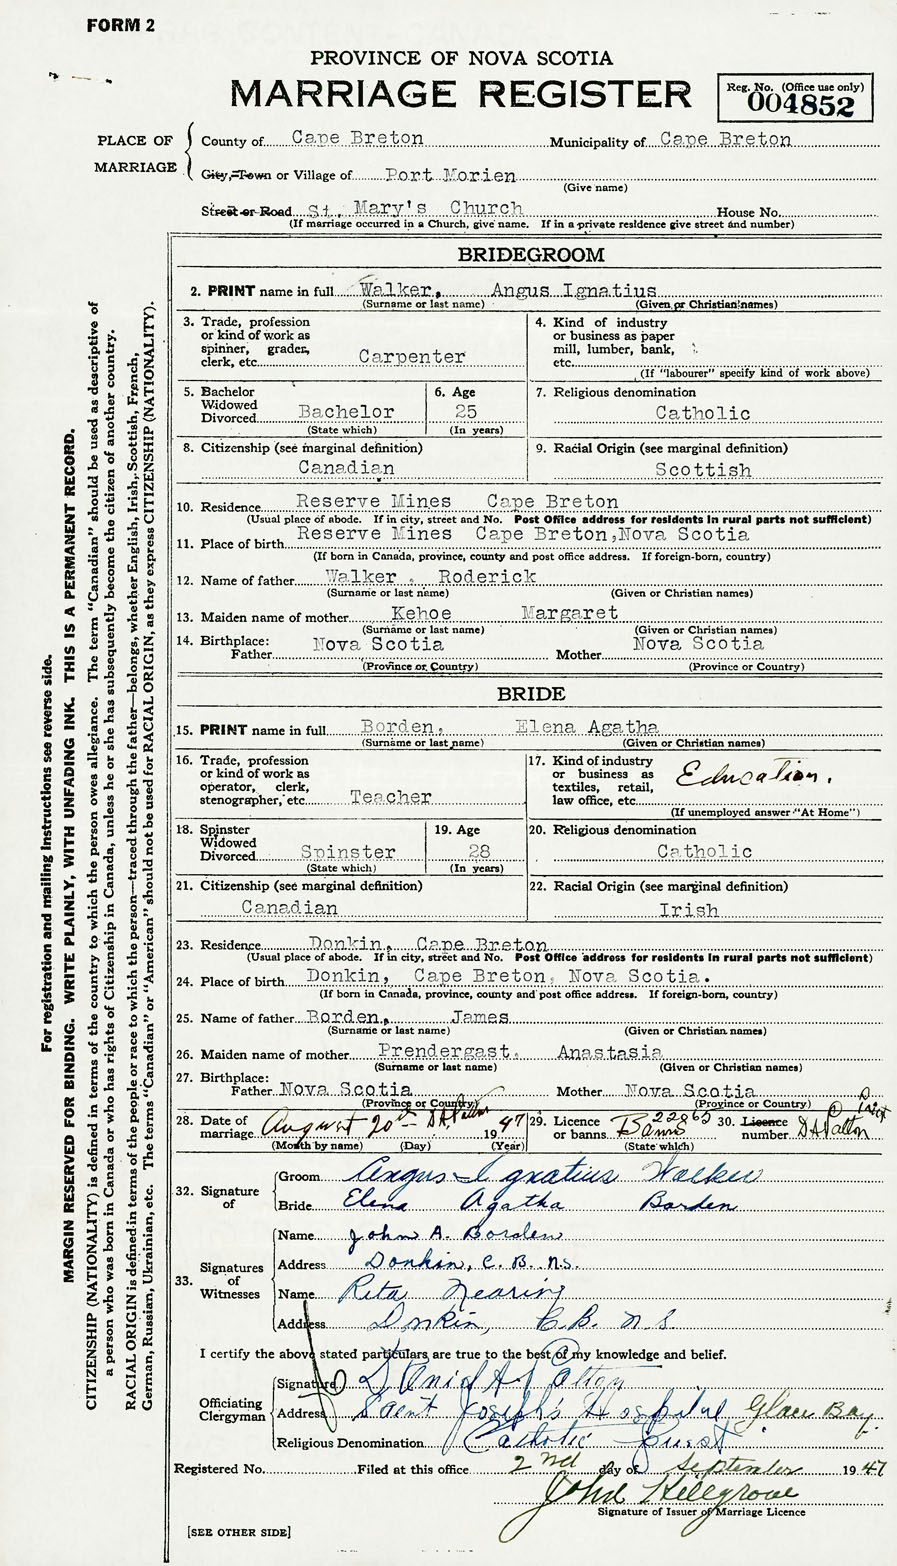 FORM 2
PROVINCE OF NOVA SCOTIA
MARRIAGE REGISTER
Reg. No. (Office use only)
004852
PLACE OF MARRIAGE
County of Cape Breton Municipality of Cape Breton
City, Town or Village of Port Morien
(Give name)
Street or Road St. Mary's Church House No.
(If marriage occurred in a Church, give name. If in a private residence give street and number)
BRIDEGROOM
2. PRINT name in full Walker, Angus Ignatius
(Surname or last name) (Given or Christian names)
3. Trade, profession or kind of work as spinner, grader, clerk, etc. Carpenter
4. Kind of industry or business as paper mill, lumber, bank, etc.
(If "labourer" specify kind of work above)
5. Bachelor Widowed Divorced Bachelor
(State which)
6. Age 25
(In years)
7. Religious denomination
Catholic
8. Citizenship (see marginal definition)
Canadian
9. Racial Origin (see marginal definition)
Scottish
10. Residence Reserve Mines Cape Breton
(Usual place of abode. If in city, street and No. Post Office address for residents in rural parts not sufficient)
11. Place of birth Reserve Mines Cape Breton, Nova Scotia
(If born in Canada, province, county and post office address. If foreign-born, country)
12. Name of father Walker, Roderick
(Surname or last name) (Given or Christian names)
13. Maiden name of mother Kehoe Margaret
(Surname or last name) (Given or Christian names)
14. Birthplace: Father Nova Scotia Mother Nova Scotia
(Province or Country) (Province or Country)
BRIDE
15. PRINT name in full Borden, Elena Agatha
(Surname or last name) (Given or Christian names)
16. Trade, profession or kind of work as operator, clerk, stenographer, etc. Teacher
17. Kind of industry or business as textiles, retail, law office, etc. Education.
(If unemployed answer "At Home")
18. Spinster Widowed Divorced Spinster
(State which)
19. Age 28
(In years)
20. Religious denomination
Catholic
21. Citizenship (see marginal definition)
Canadian
22. Racial Origin (see marginal definition)
Irish
23. Residence Donkin, Cape Breton
(Usual place of abode. If in city, street and No. Post Office address for residents in rural parts not sufficient)
24. Place of birth Donkin, Cape Breton, Nova Scotia.
(If born in Canada, province, county and post office address. If foreign-born, country)
25. Name of father Borden, James
(Surname or last name) (Given or Christian names)
26. Maiden name of mother Prendergast, Anastasia
(Surname or last name) (Given or Christian names)
27. Birthplace: Father Nova Scotia Mother Nova Scotia
(Province or Country) (Province or Country)
28. Date of marriage August 20th 1947
(Month by name) (Day) (Year)
29. Licence or banns Banns 22865
(State which)
30. Licence number
32. Signature of
Groom Angus Ignatius Walker
Bride Elena Agatha Borden
33. Signatures of Witnesses
Name John A. Borden
Address Donkin, C. B. N.S.
Name Rita Nearing
Address Donkin, C.B. N.S.
I certify the above stated particulars are true to the best of my knowledge and belief.
Officiating Clergyman
Signature
Address Saint Joseph's Hospital Glace Bay
Religious Denomination Catholic Priest
Registered No. Filed at this office 2nd day of September 1947
John Hillgrove
Signature of Issuer of Marriage Licence
[SEE OTHER SIDE]
For registration and mailing instructions see reverse side.
MARGIN RESERVED FOR BINDING. WRITE PLAINLY, WITH UNFADING INK. THIS IS A PERMANENT RECORD.
CITIZENSHIP (NATIONALITY) is defined in terms of the country to which the person owes allegiance. The term "Canadian" should be used as descriptive of
a person who was born in Canada or who has rights of Citizenship in Canada, unless he or she has subsequently become the citizen of another country.
RACIAL ORIGIN is defined in terms of the people or race to which the person—traced through the father—belongs, whether English, Irish, Scottish, French,
German, Russian, Ukrainian, etc. The terms "Canadian" or "American" should not be used for RACIAL ORIGIN, as they express CITIZENSHIP (NATIONALITY).